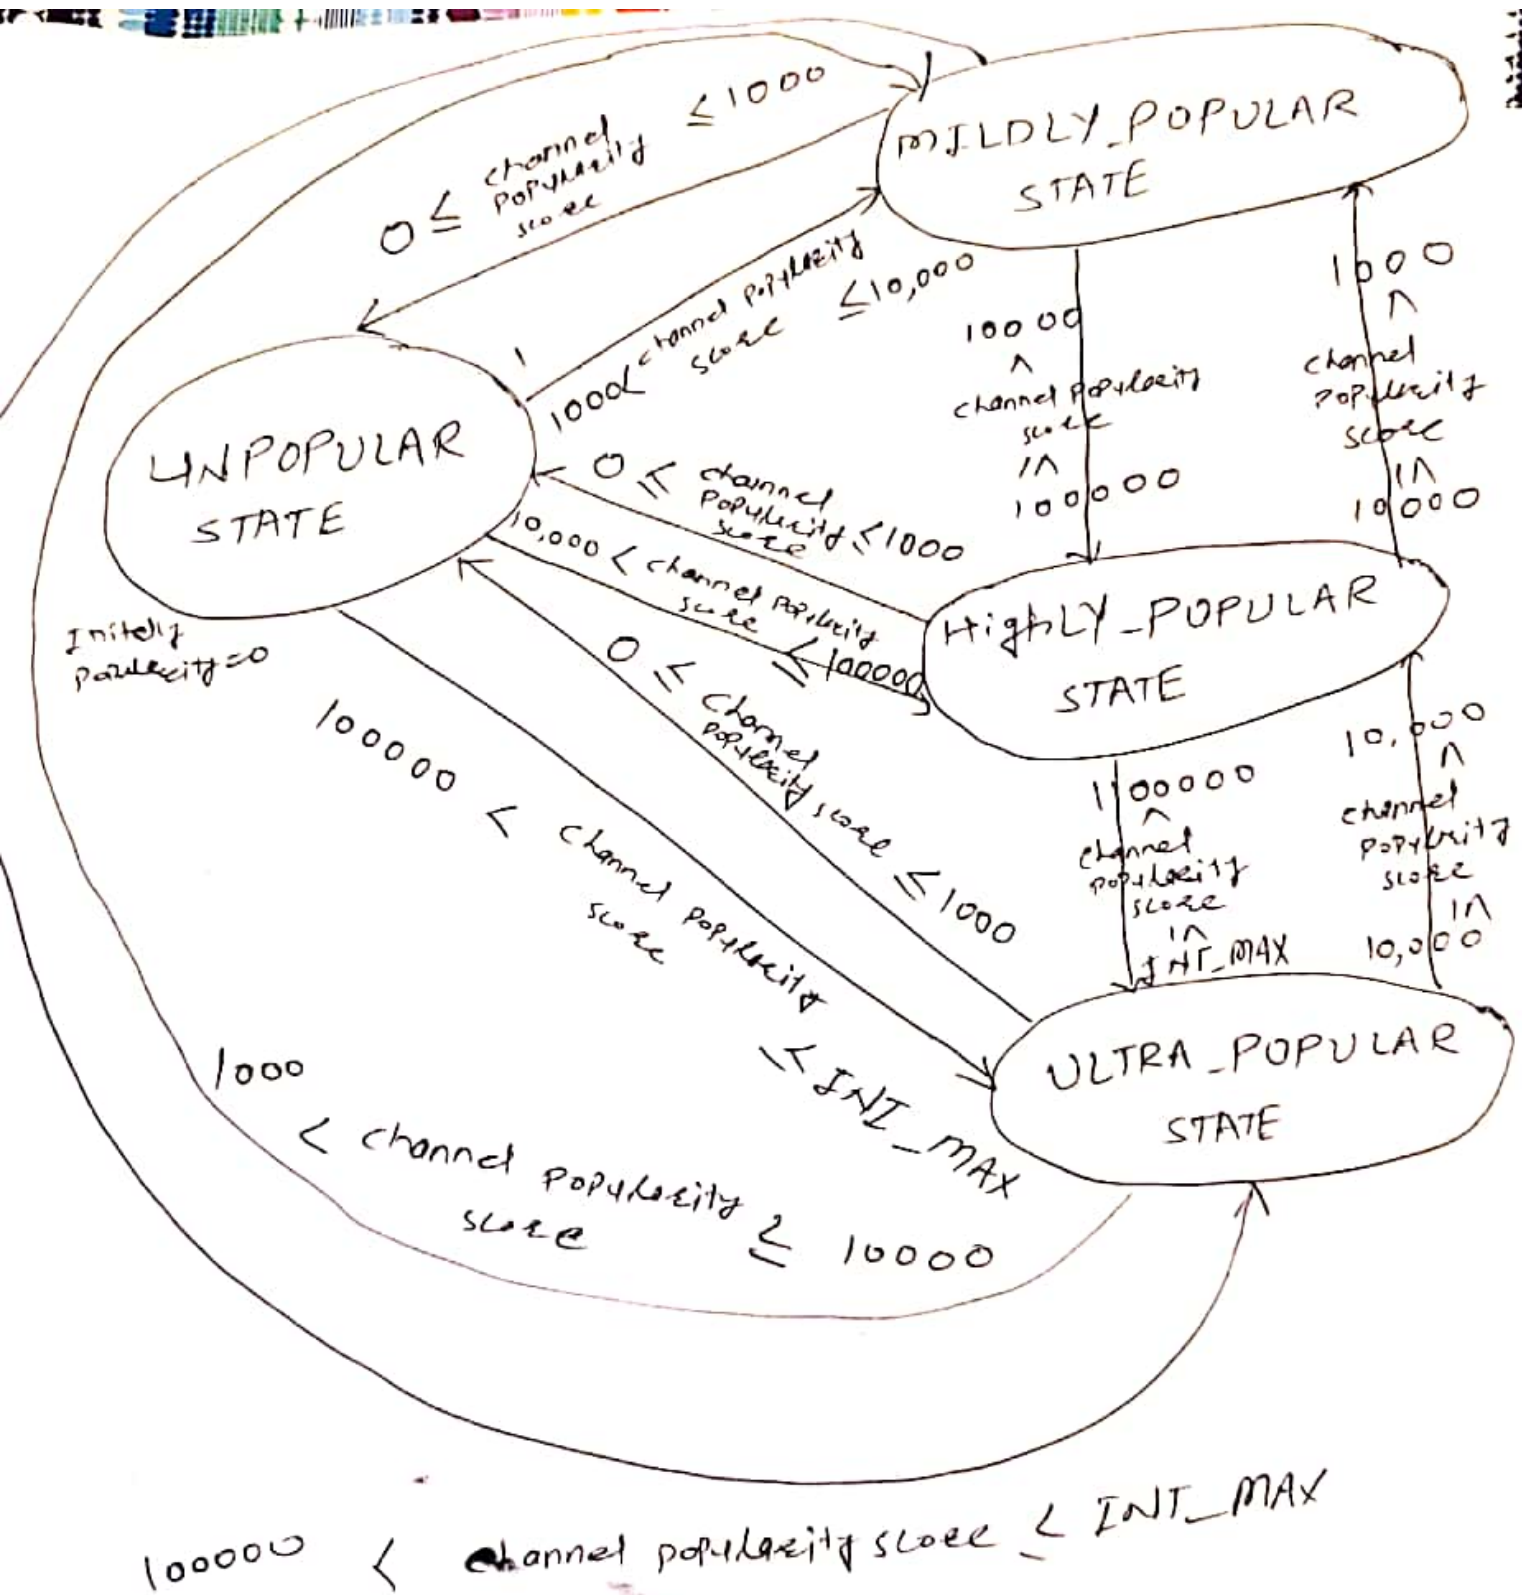 MILDLY_POPULAR
STATE
0 ≤ channel popularity score ≤ 1000
1000 < channel popularity score ≤ 10,000
10000
^
channel popularity
score
100000
1000
^
channel
popularity
score
10000
UNPOPULAR
STATE
0 ≤ channel popularity score ≤ 1000
10,000 < channel popularity score ≤ 100000
HighLY_POPULAR
STATE
0 ≤ channel popularity score ≤ 1000
100000 < channel popularity score ≤ INT_MAX
100000
^
channel
popularity
score
INT_MAX
10,000
^
channel
popularity
score
10,000
ULTRA_POPULAR
STATE
1000 < channel popularity score ≥ 10000
100000 < channel popularity score ≤ INT_MAX